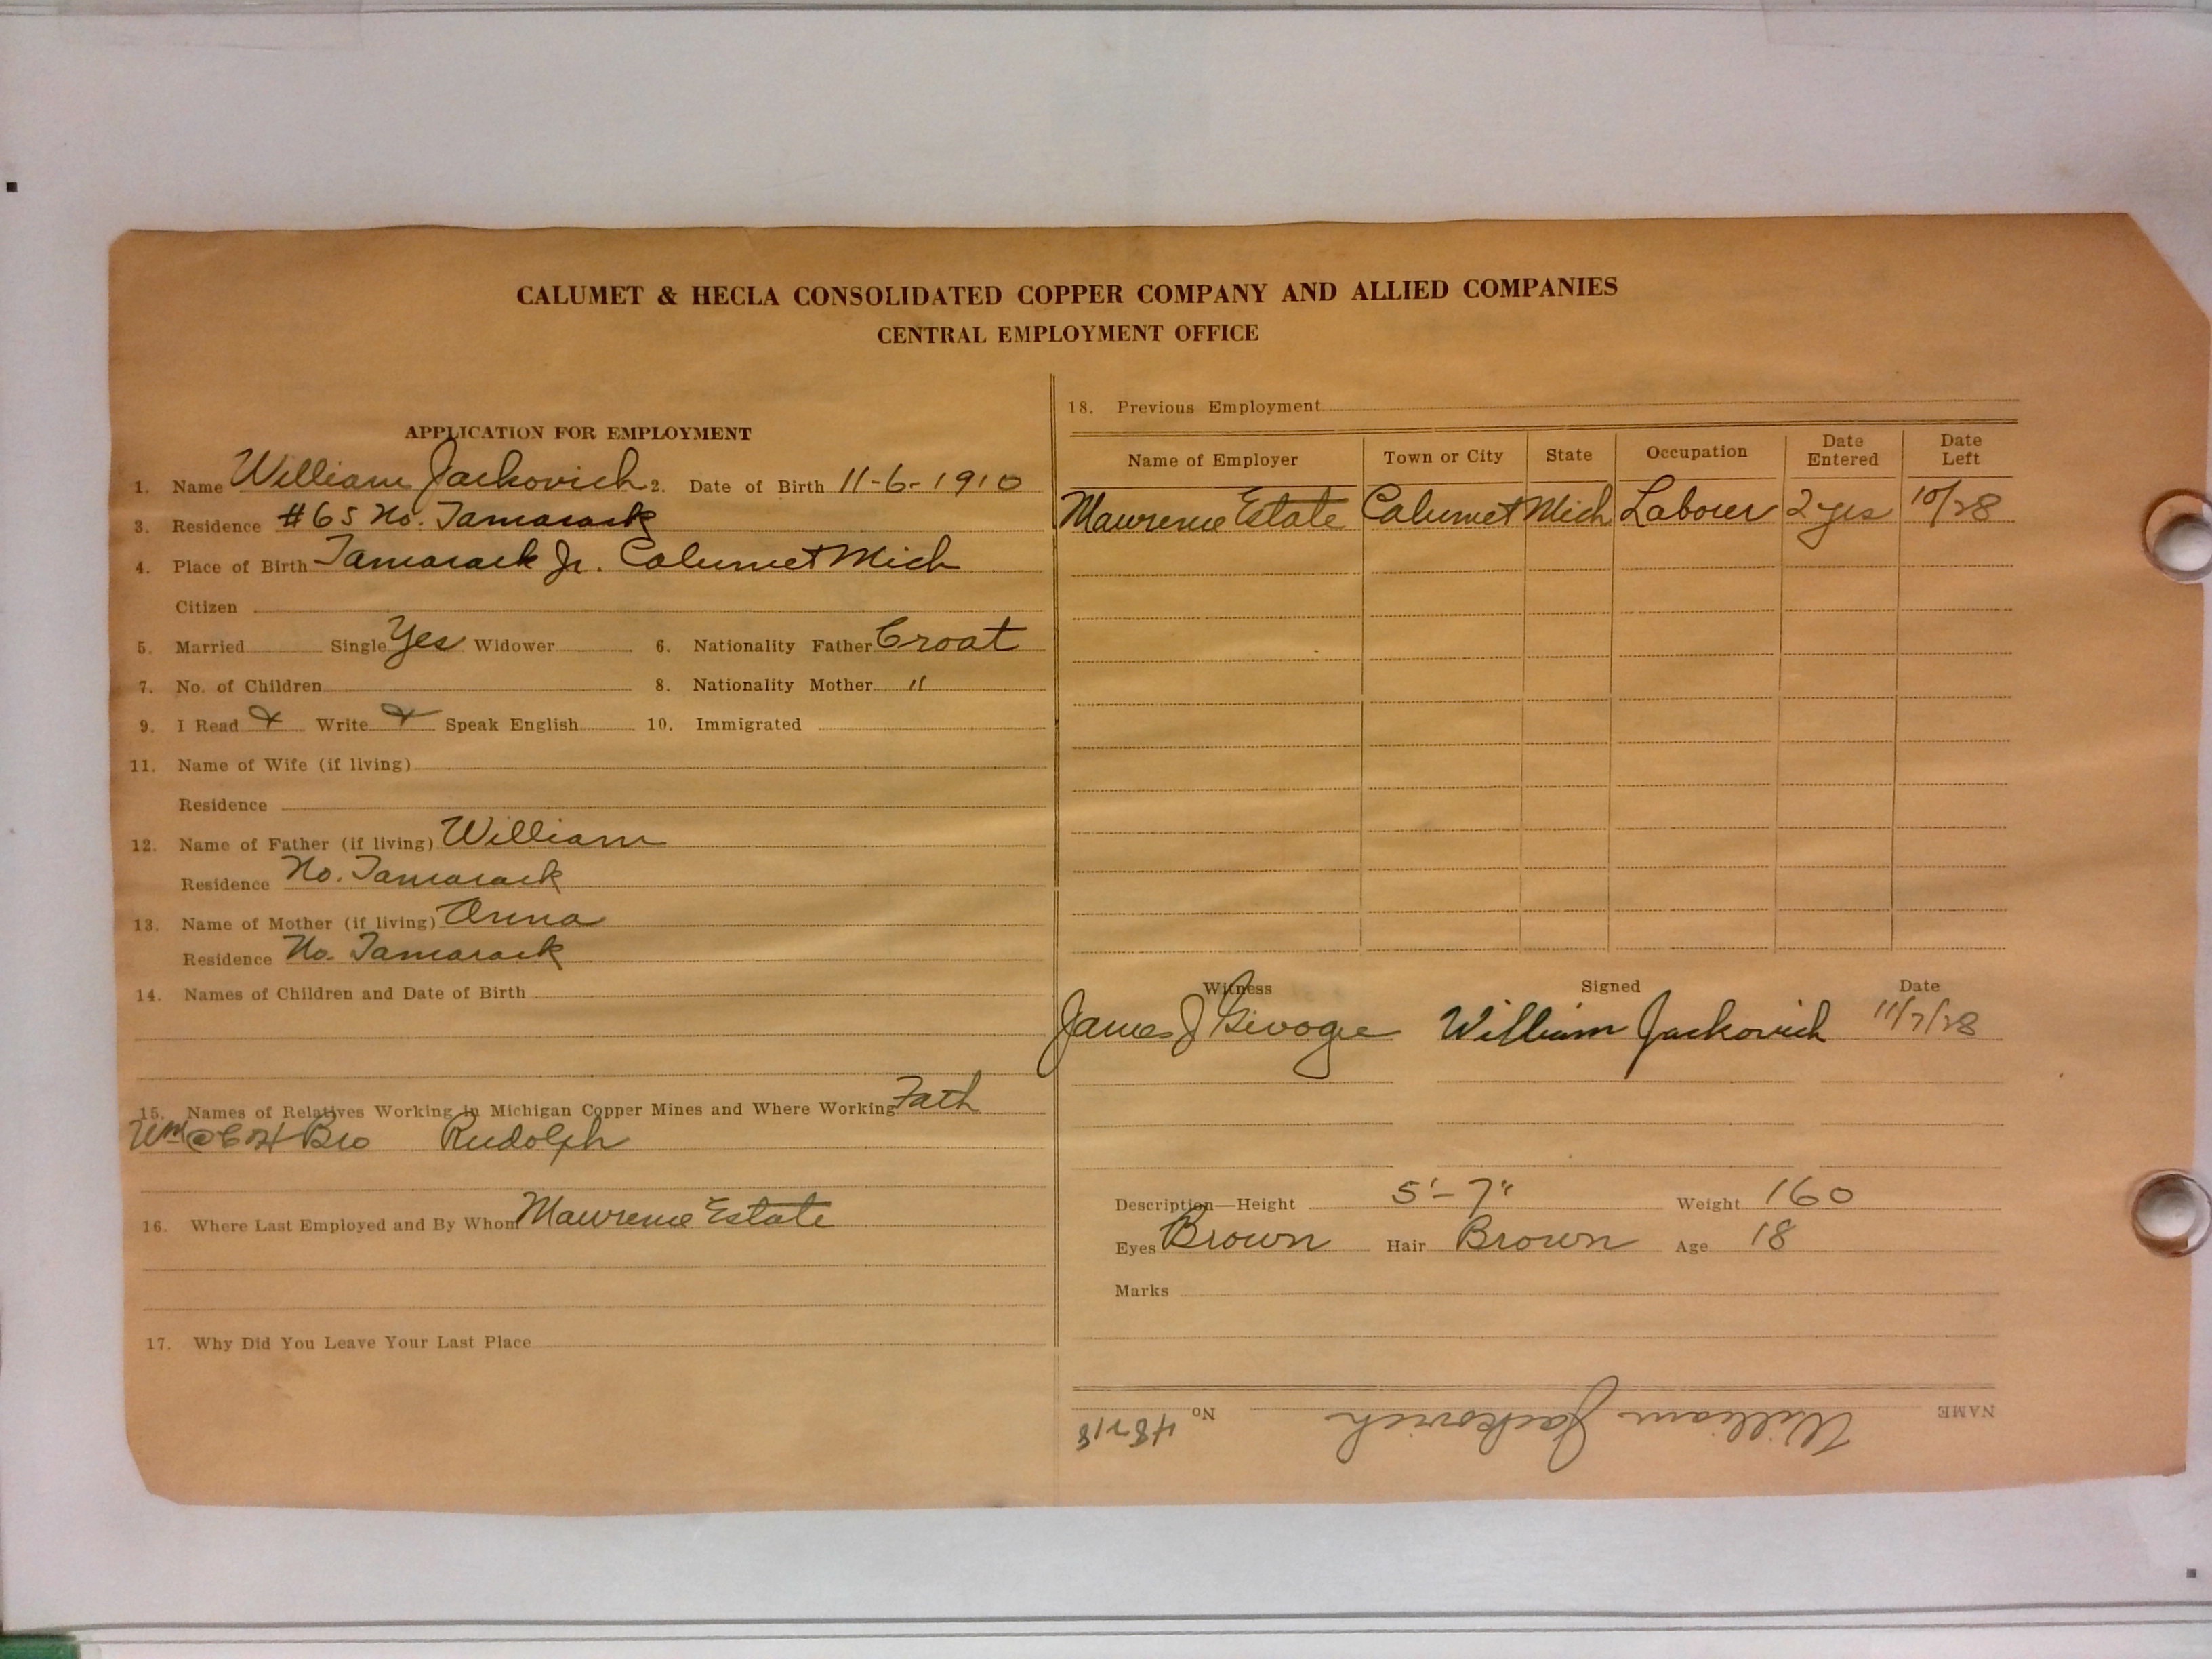 CALUMET & HECLA CONSOLIDATED COPPER COMPANY AND ALLIED COMPANIES
CENTRAL EMPLOYMENT OFFICE
APPLICATION FOR EMPLOYMENT
1. Name William Jackovich 2. Date of Birth 11-6-1910
3. Residence #65 No. Tamarack
4. Place of Birth Tamarack Jr. Calumet Mich
Citizen
5. Married Single Yes Widower 6. Nationality Father Croat
7. No. of Children 8. Nationality Mother "
9. I Read Write Speak English 10. Immigrated
11. Name of Wife (if living)
Residence
12. Name of Father (if living) William
Residence No. Tamarack
13. Name of Mother (if living) Anna
Residence No. Tamarack
14. Names of Children and Date of Birth
15. Names of Relatives Working in Michigan Copper Mines and Where Working Fath
Wm @ C H Bro Rudolph
16. Where Last Employed and By Whom Estate
17. Why Did You Leave Your Last Place
18. Previous Employment
Name of Employer Town or City State Occupation Date Entered Date Left
Estate Calumet Mich Labourer 2 yrs 10/28
Witness Signed Date
James J William Jackovich 11/7/28
Description—Height 5'-7" Weight 160
Eyes Brown Hair Brown Age 18
Marks
NAME William Jackovich No 48718